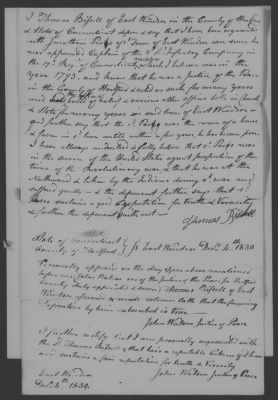 I Thomas Bissell of East Windsor in the County of Hartford
& State of Connecticut depose & say that I have been acquainted
with Jonathan Pasko of sd. Town of East Windsor ever since he
was appointed Captain of the 2d. Infantry Company in
the 19th. Reg. of Connecticut which I believe was in the
year 1793. and know that he was a Justice of the Peace
in the County of Hartford & acted as such for many years
and of various other offices both in Church
& State, for many years in and town of East Windsor.
and further say that the sd. Pasko was the owner of a house
& farm in sd. town until within a few years he has been poor.
I have always understood & fully believe that sd. Pasko was
in the service of the United States against from the
time of the Revolutionary war, & that he was at the
Northward & taken by the Indians during sd. war and
suffered greatly — & the deponent further says that sd.
Pasko sustains a good reputation for truth & veracity
& further the deponent saith not —
Thomas Bissell
State of Connecticut
County of Hartford } ss East Windsor Decr. 4th. 1830
Personally appeared on the day & year above mentioned
before me, John Watson one of the Justices of the Peace for Hartford
County duly appointed & sworn, Thomas Bissell of East
Windsor aforesaid & made solemn oath that the foregoing
deposition by him subscribed is true
John Watson Justice of Peace
I further certify that I am personally acquainted with
the sd. Thomas Bissell & that he is a reputable citizen of sd. town
and sustains a fair reputation for truth & veracity
East Windsor
Decr. 4th. 1830.
John Watson Justice of Peace